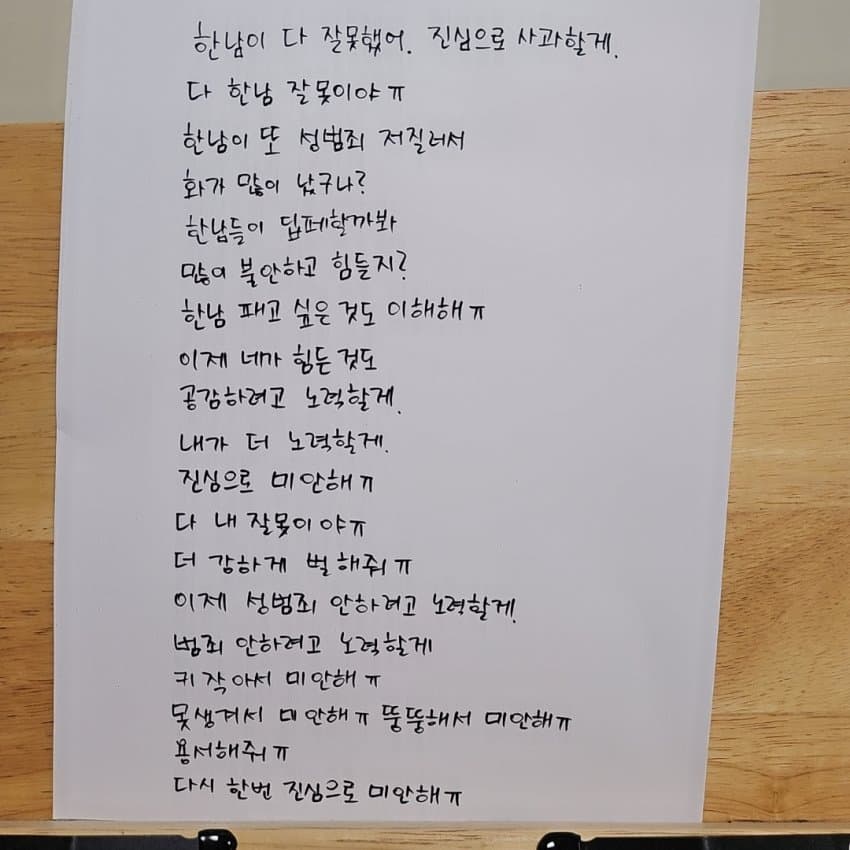 한남이 다 잘못했어. 진심으로 사과할게.
다 한남 잘못이야ㅠ
한남이 또 성범죄 저질러서
화가 많이 났구나?
한남들이 딥페할까봐
많이 불안하고 힘들지?
한남 패고 싶은 것도 이해해ㅠ
이제 네가 힘든 것도
공감하려고 노력할게.
내가 더 노력할게.
진심으로 미안해ㅠ
다 내 잘못이야ㅠ
더 강하게 벌해줘ㅠ
이제 성범죄 안하려고 노력할게.
범죄 안하려고 노력할게
키 작아서 미안해ㅠ
못생겨서 미안해ㅠ 뚱뚱해서 미안해ㅠ
용서해줘ㅠ
다시 한번 진심으로 미안해ㅠ